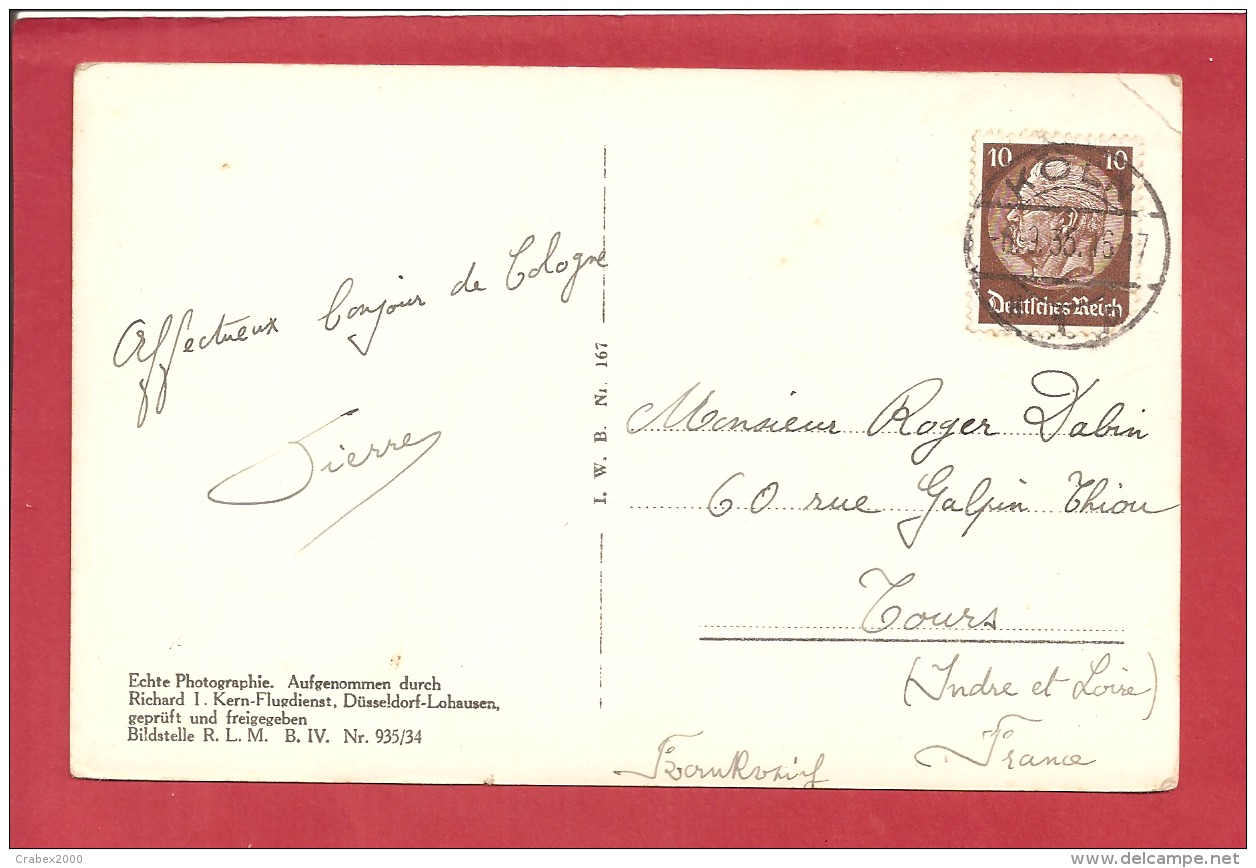 Affectueux bonjour de Cologne
Pierre
Echte Photographie. Aufgenommen durch
Richard I. Kern-Flugdienst, Düsseldorf-Lohausen,
geprüft und freigegeben
Bildstelle R. L. M. B. IV. Nr. 935/34
I. W. B. Nr. 167
10 10
KÖLN
35. 16-17
1
Deutsches Reich
Monsieur Roger Dabin
60 rue Galpin Thiou
Tours
(Indre et Loire)
France
Frankreich
Crabex2000
www.delcampe.net